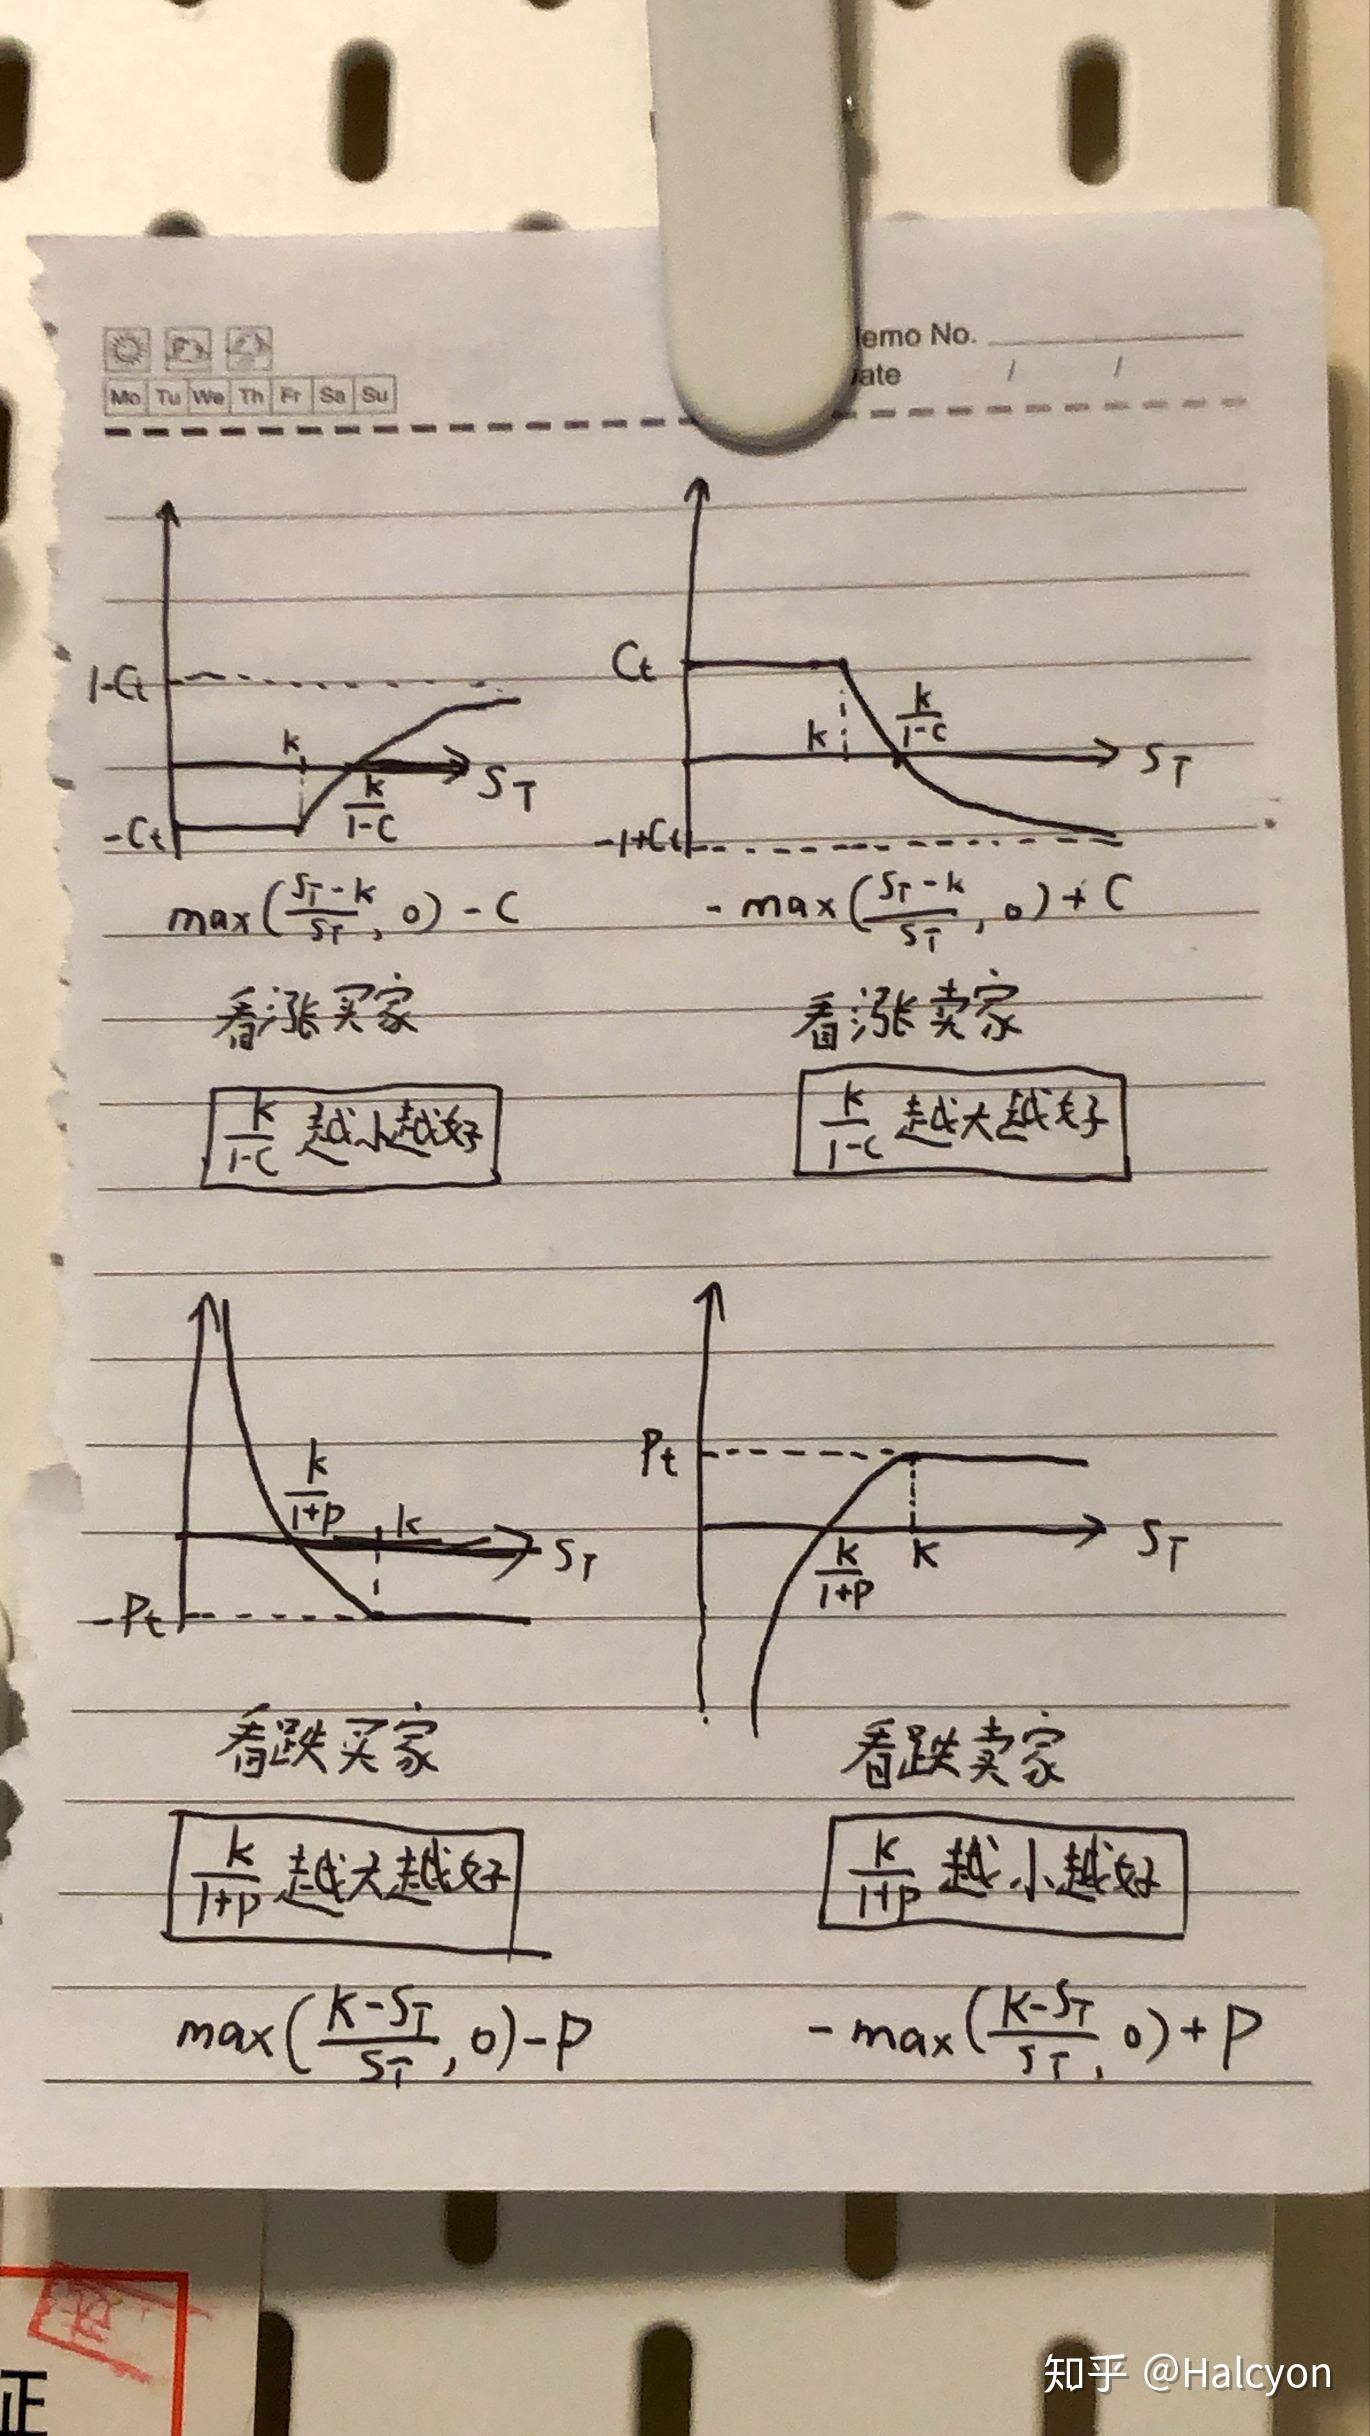 Memo No.
Date / /
Mo Tu We Th Fr Sa Su
1-Ct
k
k/(1-C)
S_T
-Ct
max((S_T-k)/S_T, 0) - C
看涨买家
k/(1-C) 越小越好
Ct
k
k/(1-C)
S_T
-1+Ct
-max((S_T-k)/S_T, 0) + C
看涨卖家
k/(1-C) 越大越好
k/(1+P)
k
S_T
-Pt
看跌买家
k/(1+P) 越大越好
max((K-S_T)/S_T, 0) - P
Pt
k/(1+P)
K
S_T
看跌卖家
k/(1+P) 越小越好
-max((K-S_T)/S_T, 0) + P
正
知乎 @Halcyon